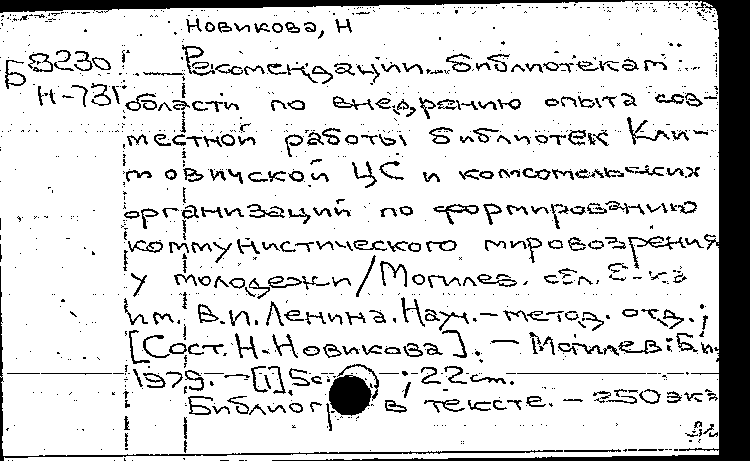 Новикова, Н
Б 8230
Н-731
Рекомендации библиотекам
области по внедрению опыта сов-
местной работы библиотек Кли-
мовичской ЦС и комсомольских
организаций по формированию
коммунистического мировозрения
у молодежи/Могилев. обл. б-ка
им. В.И.Ленина. Науч.-метод. отд.;
[Сост. Н.Новикова]. - Могилев: Б.и.,
1979. - [1], 5с. ; 22см.
Библиогр в тексте. - 250 экз